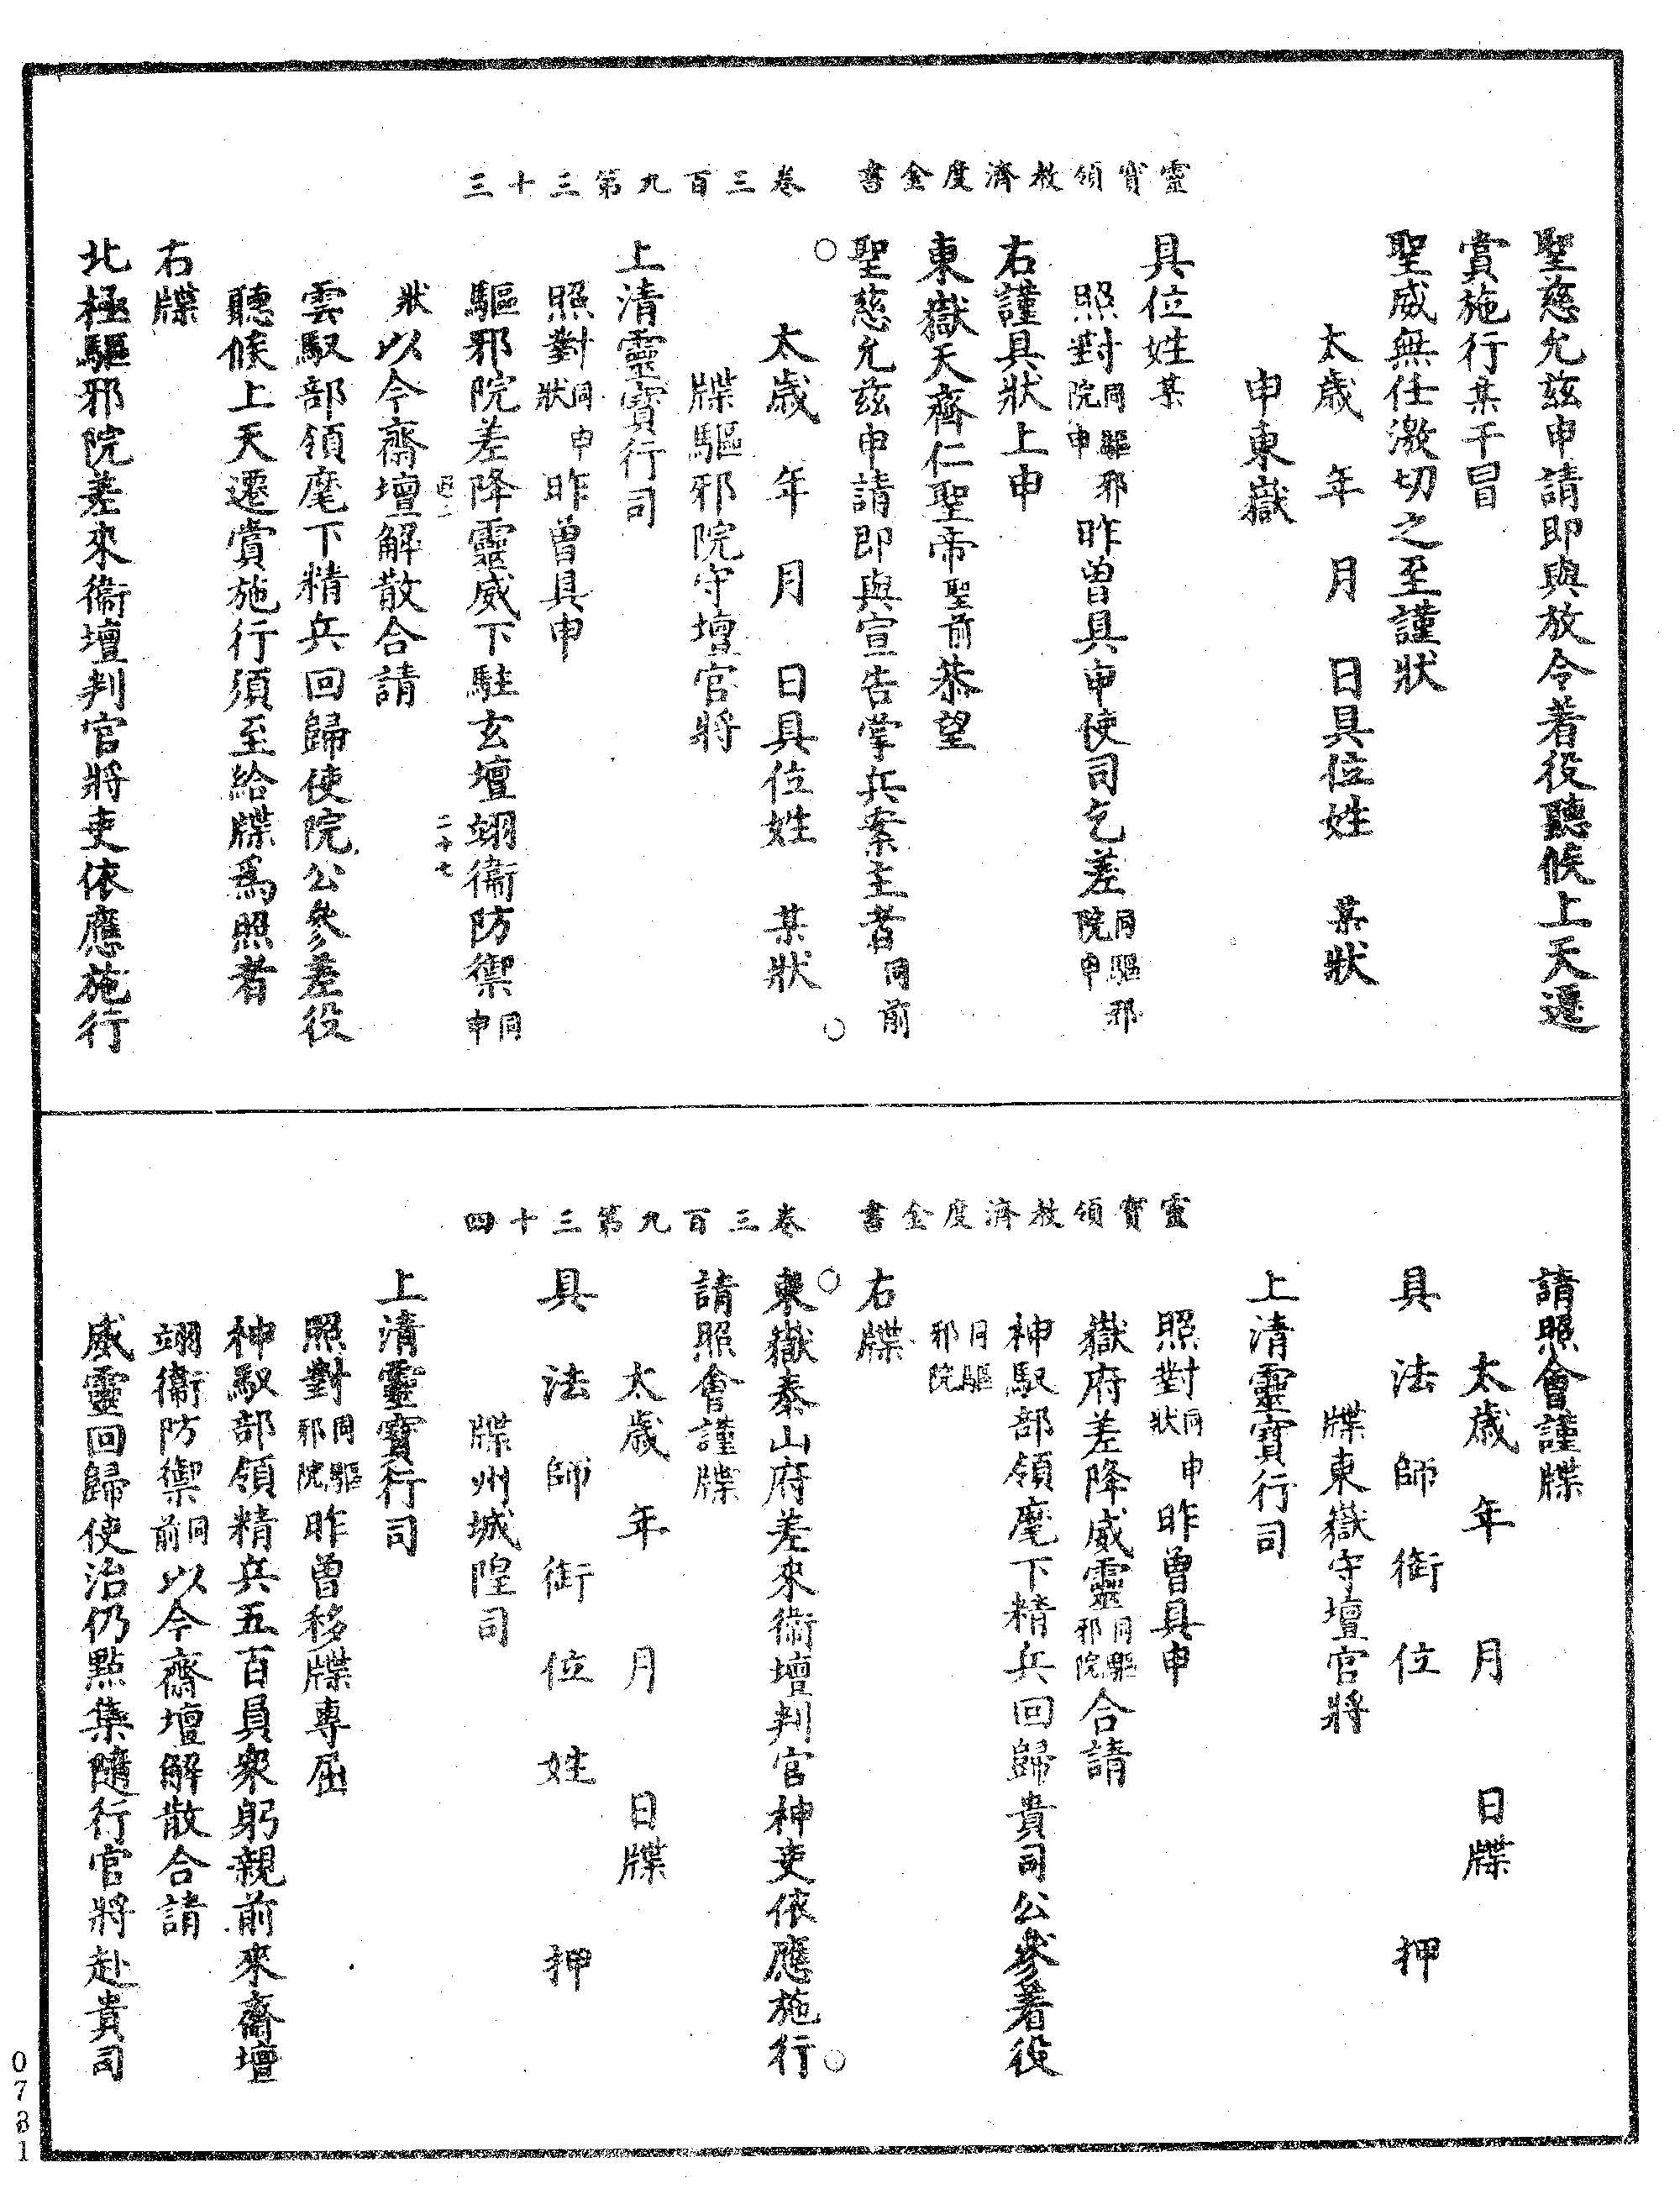 靈寶領教濟度金書　卷三百九第三十三
聖慈允茲申請即與放令着役聽候上天遷
賞施行某干冒
聖威無任激切之至謹狀
太歲　年　月　日具位姓　某狀
申東嶽
具位姓某
照對同驅邪院申昨曾具申使司乞差同驅邪院申
右謹具狀上申
東嶽天齊仁聖帝聖前恭望
聖慈允茲申請即與宣告掌兵案主者同前
太歲　年　月　日具位姓　某狀
牒驅邪院守壇官將
上清靈寶行司
照對同申狀昨曾具申
驅邪院差降靈威下駐玄壇翊衞防禦同申
狀以今齋壇解散合請
二十七
雲馭部領麾下精兵回歸使院公參差役
聽候上天遷賞施行須至給牒爲照者
右牒
北極驅邪院差來衞壇判官將吏依應施行
靈寶領教濟度金書　卷三百九第三十四
請照會謹牒
太歲　年　月　日牒
具法師銜位　押
牒東嶽守壇官將
上清靈寶行司
照對同申狀昨曾具申
嶽府差降威靈同驅邪院合請
神馭部領麾下精兵回歸貴司公參着役
同驅邪院
右牒
東嶽泰山府差來衞壇判官神吏依應施行
請照會謹牒
太歲　年　月　日牒
具法師銜位姓　押
牒州城隍司
上清靈寶行司
照對同驅邪院昨曾移牒專屈
神馭部領精兵五百員衆躬親前來齋壇
翊衞防禦同前以今齋壇解散合請
威靈回歸使治仍點集隨行官將赴貴司
0731